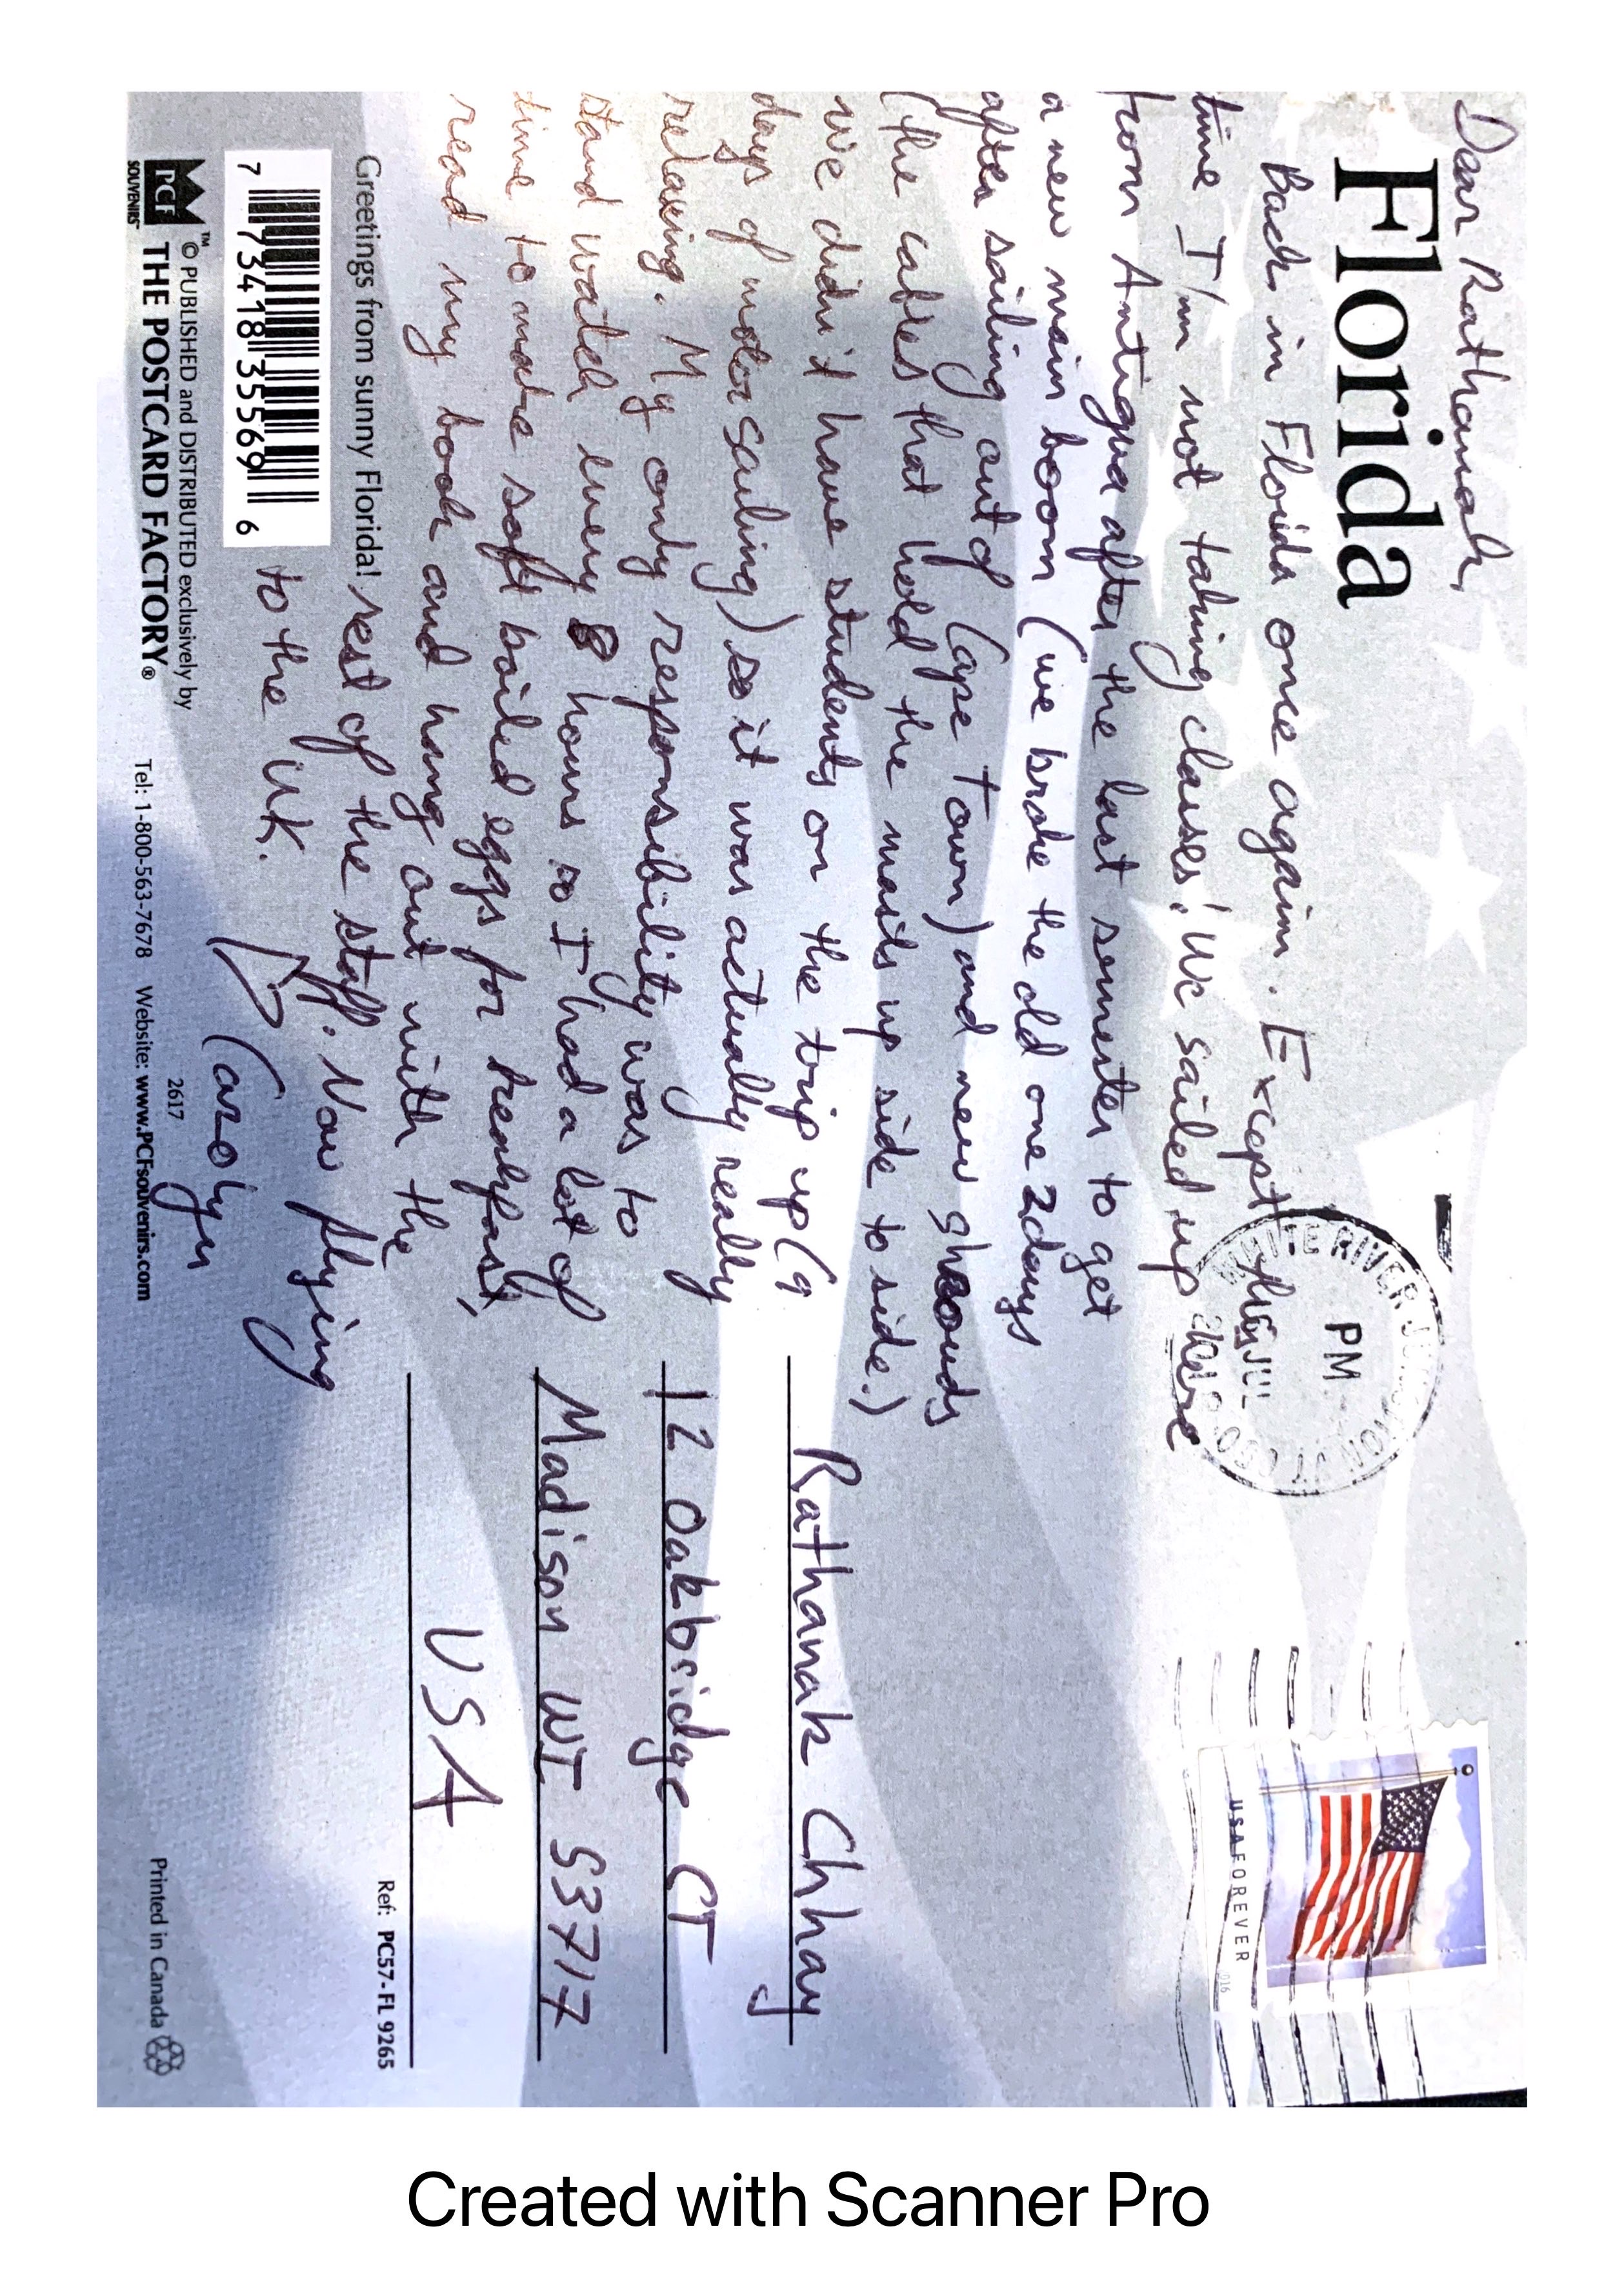 Dear Rathanak,
Florida
Back in Florida once again. Except this
time I'm not taking classes! We sailed up here
from Antigua after the last semester to get
a new main boom (we broke the old one 2 days
after sailing out of Cape Town) and new shrouds
(the cables that hold the masts up side to side.)
we didn't have students on the trip up (9
days of motor sailing) so it was actually really
relaxing. My only responsibility was to
stand watch every 8 hours so I had a lot of
time to make soft boiled eggs for breakfast,
read my book and hang out with the
rest of the staff. Now flying
to the UK.
Carolyn
PM
JUL
Rathanak Chhay
12 Oakbridge CT
Madison WI 53717
USA
USA FOREVER
Greetings from sunny Florida!
7 73418 35569 6
PCF
SOUVENIRS™
™ © PUBLISHED and DISTRIBUTED exclusively by
THE POSTCARD FACTORY®
Tel: 1-800-563-7678 Website: www.PCFsouvenirs.com
2617
Ref: PC57- FL 9265
Printed in Canada
Created with Scanner Pro